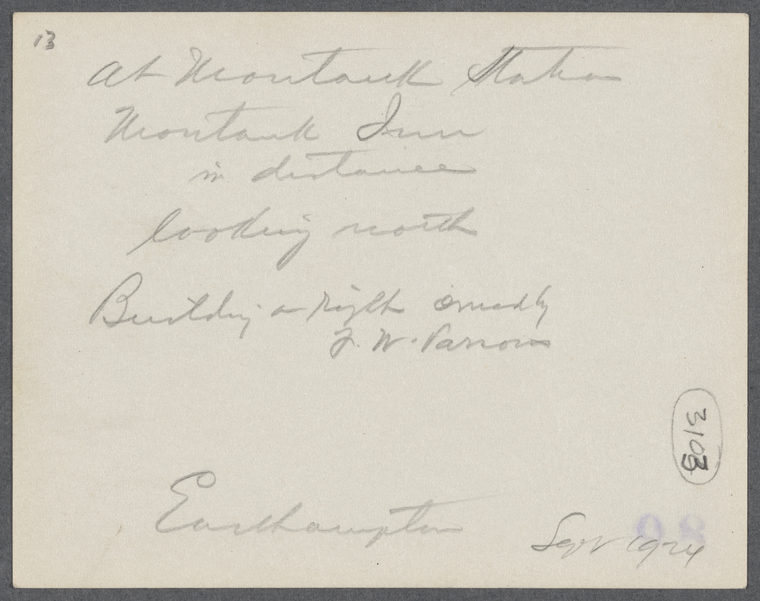 13
At Montauk Station
Montauk Inn
in distance
looking north
Building on Right owned by
F. W. Parsons
3103
Easthampton
98
Sept 1924